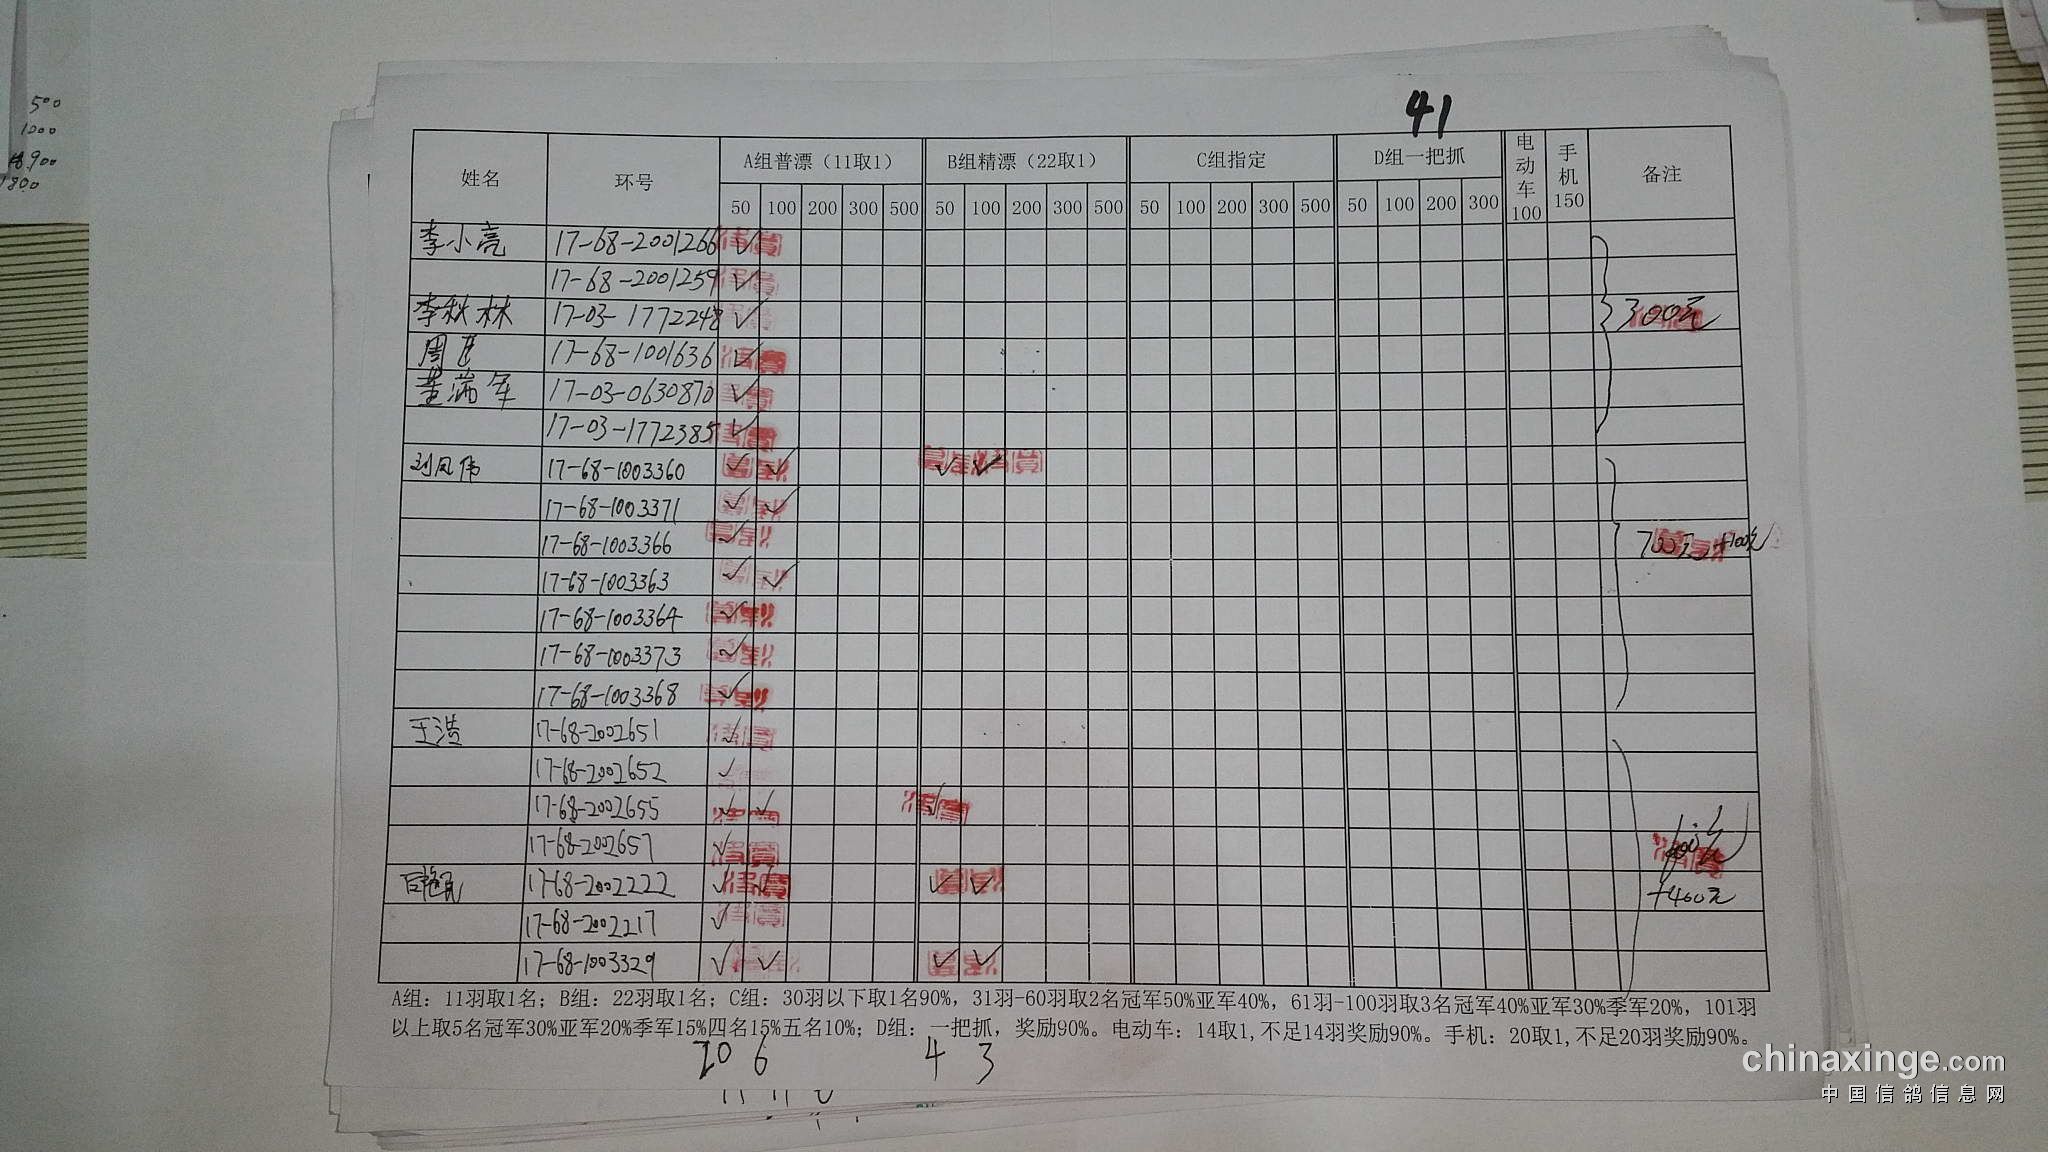 500
1200
18900
1800
41
姓名 环号 A组普漂（11取1） B组精漂（22取1） C组指定 D组一把抓 电动车100 手机150 备注
50 100 200 300 500 50 100 200 300 500 50 100 200 300 500 50 100 200 300
李小亮 17-68-2001266 ✓
17-68-2001259 ✓
李秋林 17-03-1772248 ✓ 300元
周 17-68-1001636 ✓
董瑞军 17-03-0630870 ✓
17-03-1772385 ✓
刘凤伟 17-68-1003360 ✓ ✓ ✓ ✓
17-68-1003371 ✓ ✓
17-68-1003366 ✓ 700元+100元
17-68-1003363 ✓ ✓
17-68-1003364 ✓
17-68-1003373 ✓
17-68-1003368 ✓
王洪 17-68-2002651 ✓
17-68-2002652 ✓
17-68-2002655 ✓ ✓ ✓
17-68-2002657 ✓
17-68-2002222 ✓ ✓ ✓ ✓ +400元
17-68-2002217 ✓
17-68-1003329 ✓ ✓ ✓ ✓
A组：11羽取1名；B组：22羽取1名；C组：30羽以下取1名90%，31羽-60羽取2名冠军50%亚军40%，61羽-100羽取3名冠军40%亚军30%季军20%，101羽
以上取5名冠军30%亚军20%季军15%四名15%五名10%；D组：一把抓，奖励90%。电动车：14取1,不足14羽奖励90%。手机：20取1,不足20羽奖励90%。
20 6 4 3
chinaxinge.com
中国信鸽信息网